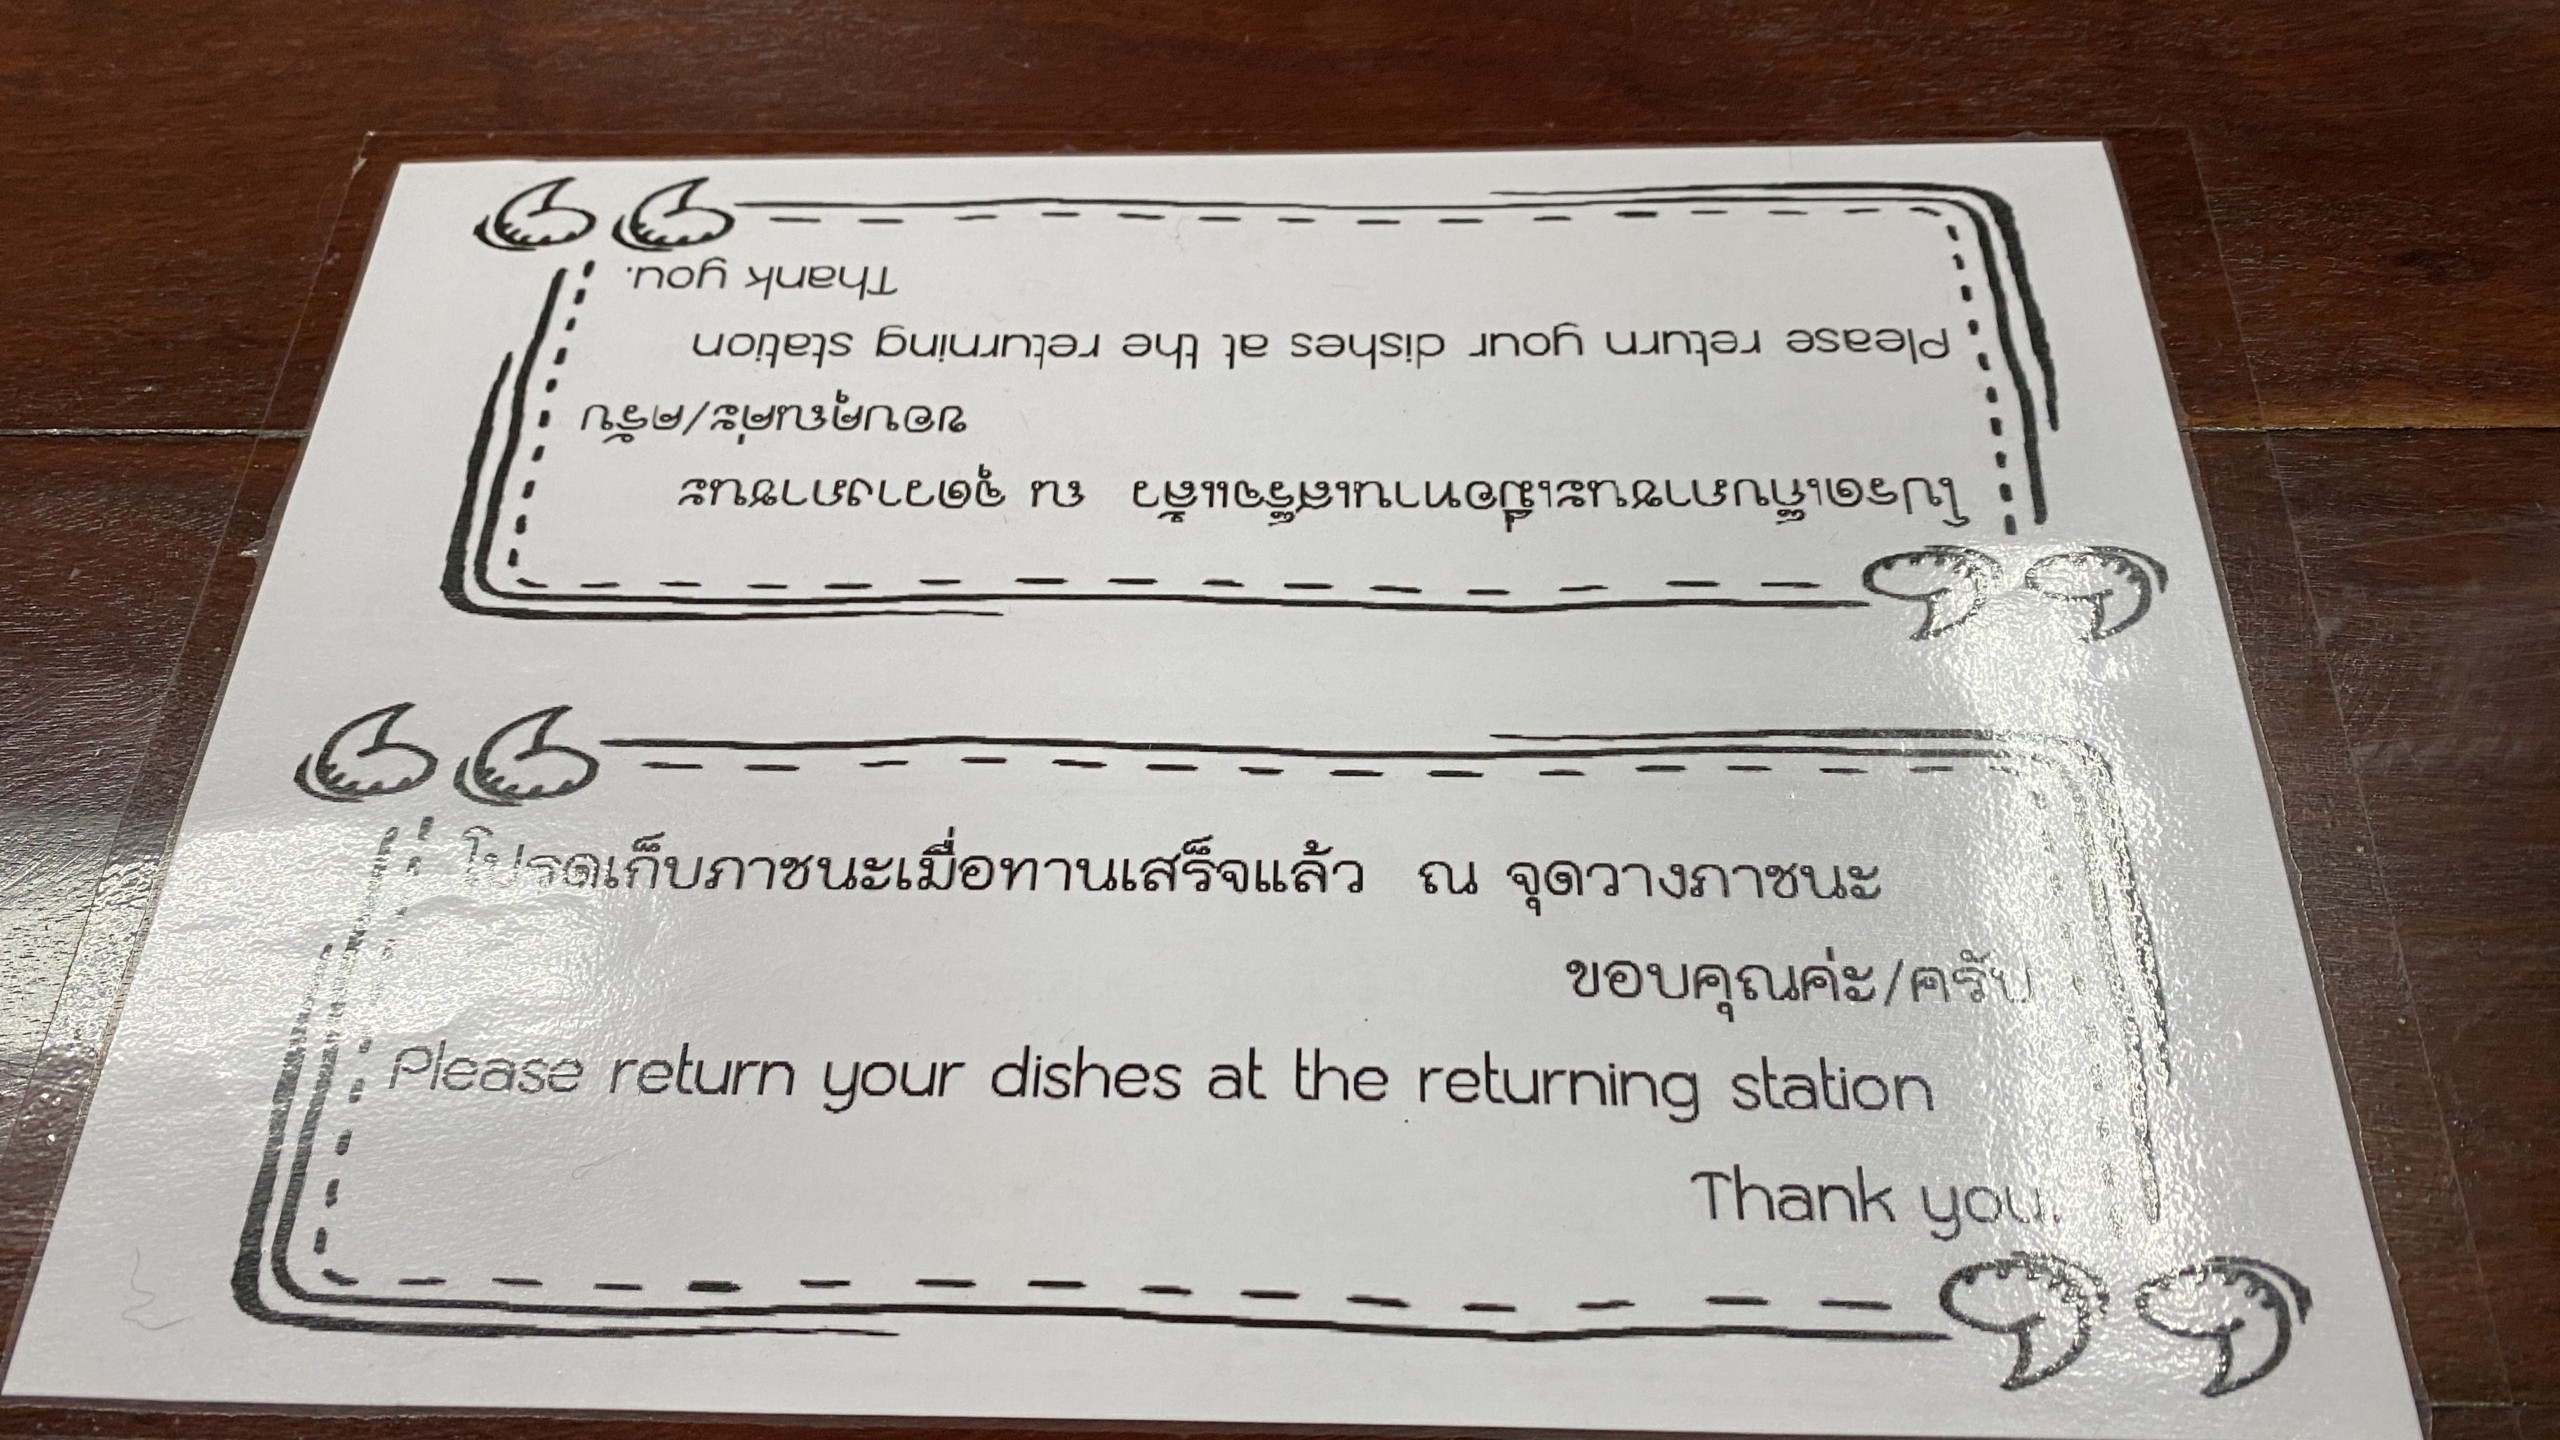 Thank you.
Please return your dishes at the returning station
ขอบคุณค่ะ/ครับ
โปรดเก็บภาชนะเมื่อทานเสร็จแล้ว ณ จุดวางภาชนะ
โปรดเก็บภาชนะเมื่อทานเสร็จแล้ว ณ จุดวางภาชนะ
ขอบคุณค่ะ/ครับ
Please return your dishes at the returning station
Thank you.